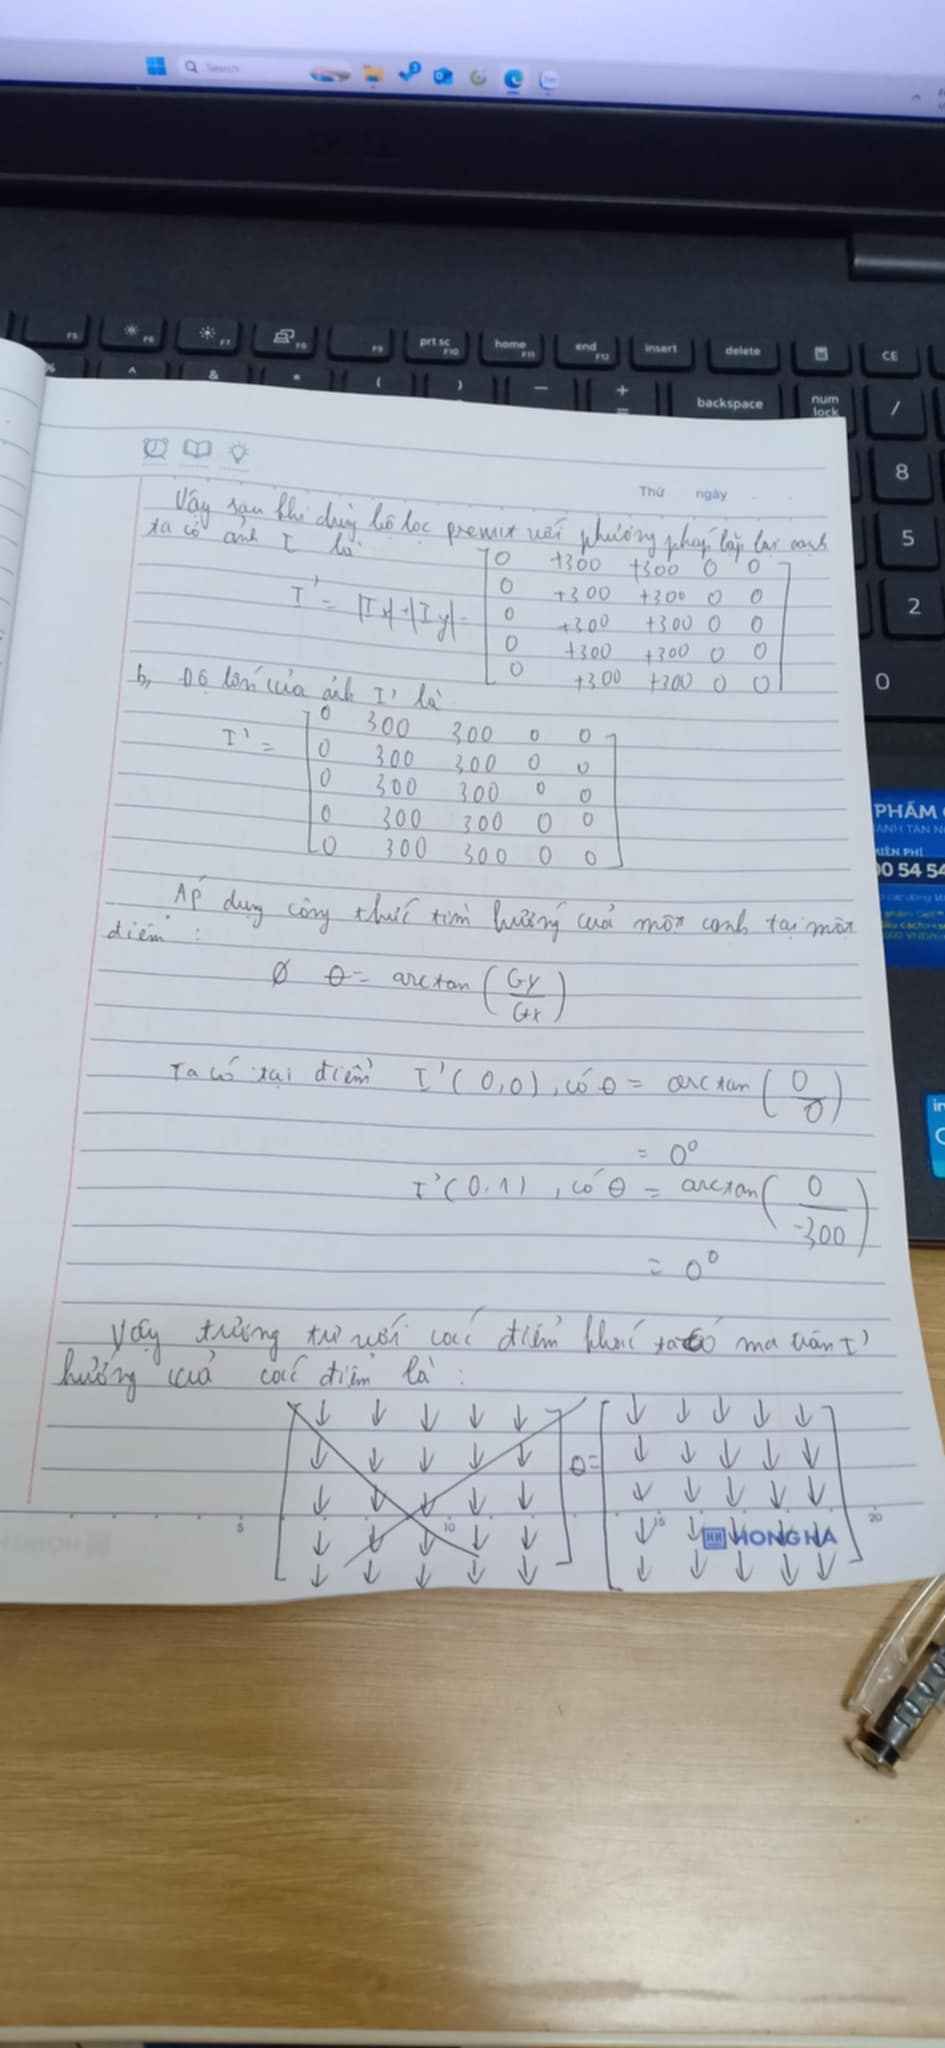 Search
F5 F6 F7 F8 F9 prt sc F10 home F11 end F12 insert delete CE
% ^ & * ( ) — + = backspace num lock /
8
5
2
0
PHẨM
ANH TÂN
IỄN PHÍ
0 54 54
Thứ ngày . .
Vậy sau khi dùng bộ lọc premit với phương pháp lặp lại cạnh
ta có ảnh I là
I' = |Ix|+|Iy| = [ 0 +300 +300 0 0 ]
0 +300 +300 0 0
0 +300 +300 0 0
0 +300 +300 0 0
0 +300 +300 0 0
b, Độ lớn của ảnh I' là
I' = [ 0 300 300 0 0 ]
0 300 300 0 0
0 300 300 0 0
0 300 300 0 0
0 300 300 0 0
Áp dụng công thức tìm hướng của một cạnh tại một
điểm :
Ø θ = arctan (Gy/Gx)
Ta có tại điểm I'(0,0), có θ = arctan (0/0)
= 0°
I'(0,1), có θ = arctan (0/-300)
= 0°
Vậy tương tự với các điểm khác ta có ma trận I'
hướng của các điểm là :
[ ↓ ↓ ↓ ↓ ↓ ] θ = [ ↓ ↓ ↓ ↓ ↓ ]
↓ ↓ ↓ ↓ ↓ ↓ ↓ ↓ ↓ ↓
↓ ↓ ↓ ↓ ↓ ↓ ↓ ↓ ↓ ↓
↓ ↓ ↓ ↓ ↓ ↓ ↓ ↓ ↓ ↓
↓ ↓ ↓ ↓ ↓ ↓ ↓ ↓ ↓ ↓
5 10 15 20
HH HONG HA